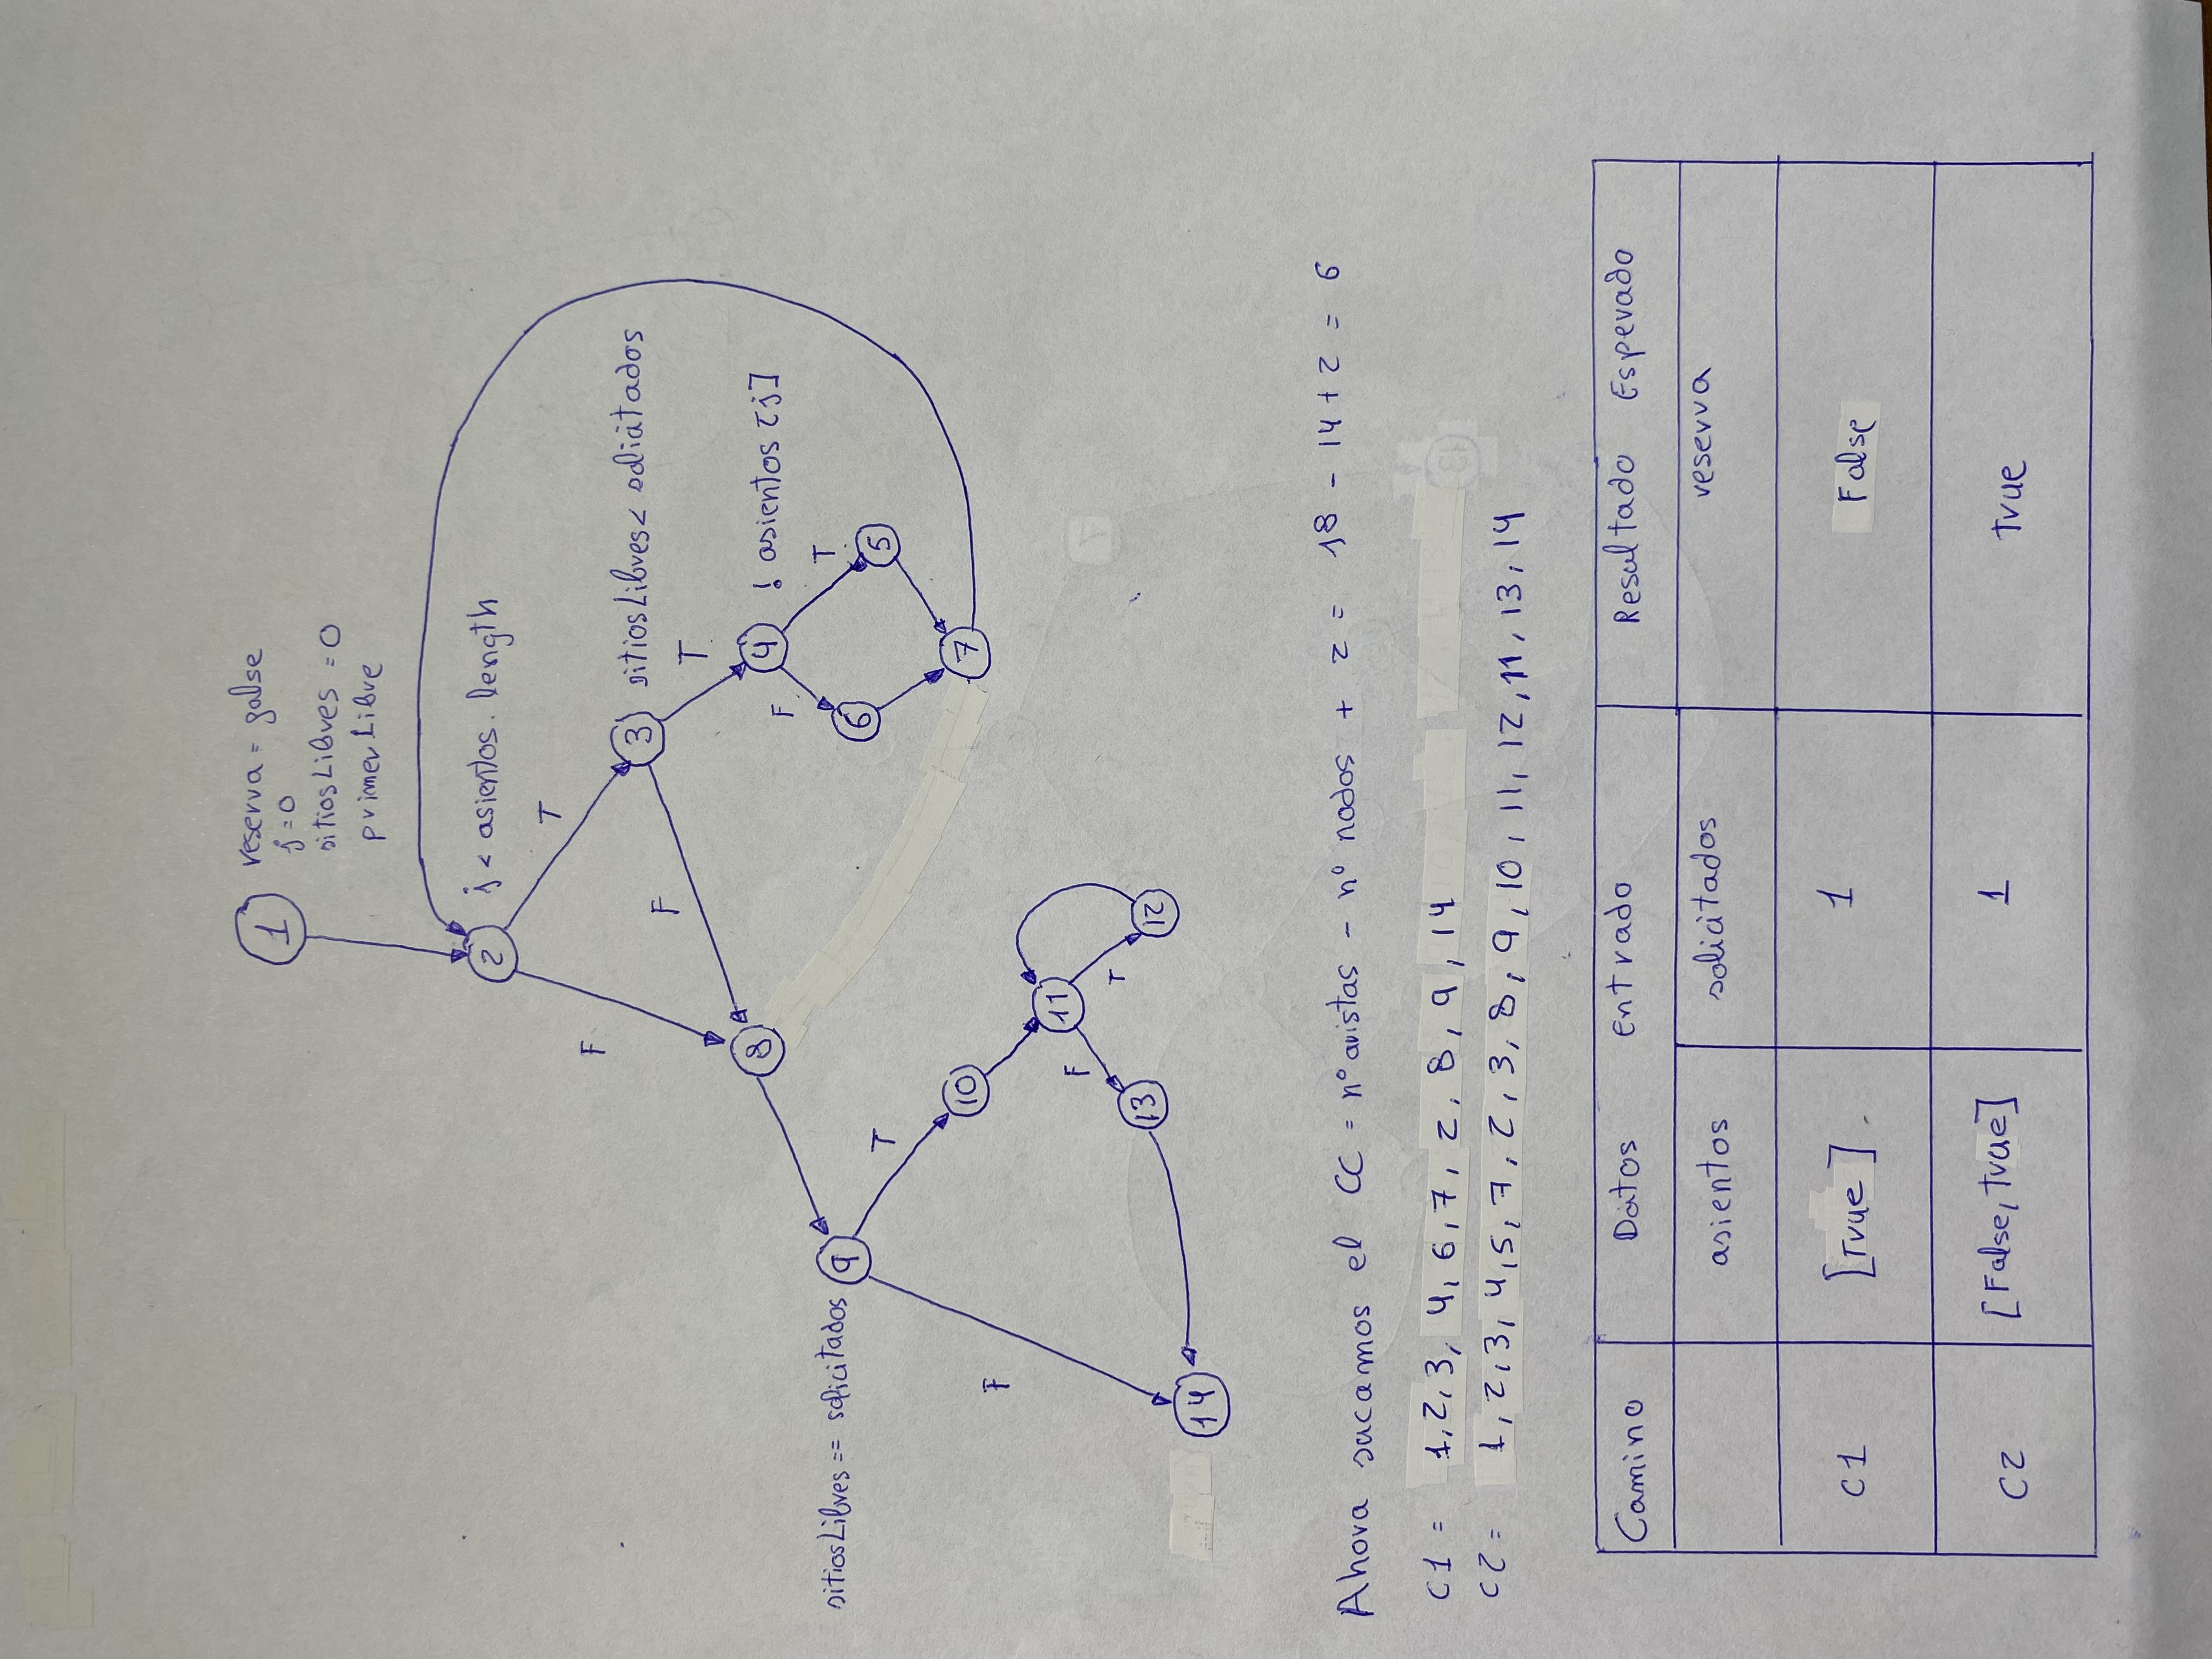 1 reserva = false
j=0
sitiosLibres = 0
primerLibre
2 j < asientos.length
T
F
3 sitiosLibres < solicitados
F
T
8
4 ! asientos [j]
F
T
sitiosLibres == solicitados 9
6
5
T
10
7
F
11
F
T
13
12
14
Ahora sacamos el CC = nº aristas - nº nodos + 2 = 18 - 14 + 2 = 6
C1 = 1,2,3, 4, 6, 7, 2, 8, 9, 14
C2 = 1,2,3,4,5,7,2,3,8,9,10,11,12,11,13,14
Camino Datos Entrado Resultado Esperado
asientos solicitados reserva
C1 [True] 1 False
C2 [False, true] 1 true